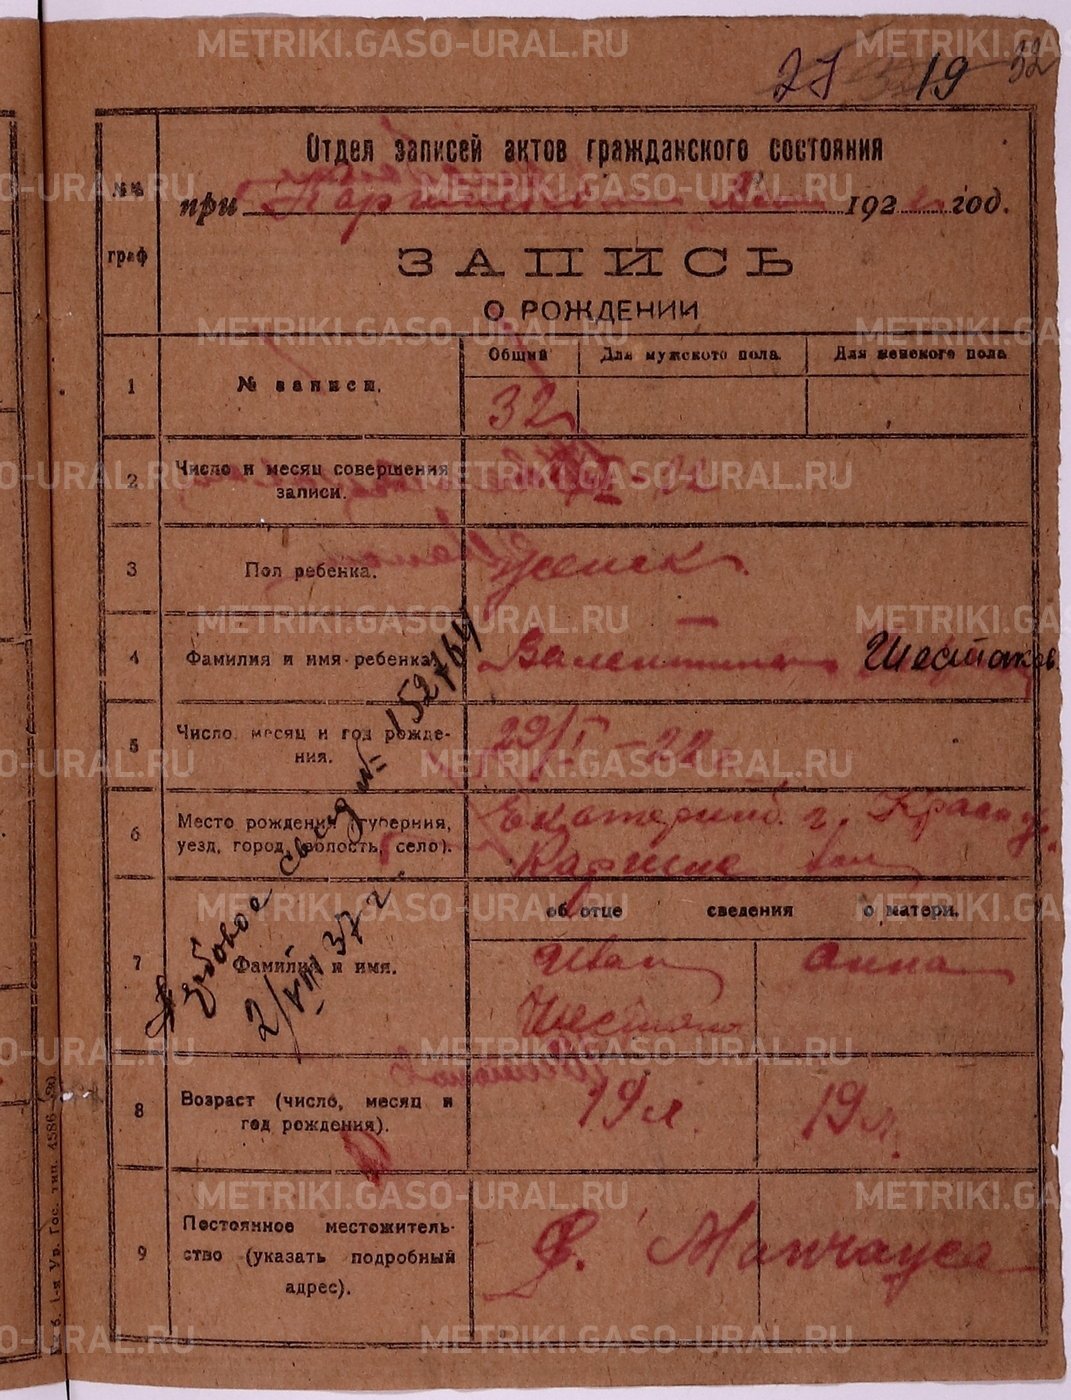 METRIKI.GASO-URAL.RU
27 19 32
Отдел записей актов гражданского состояния
№№ граф
при 192 год.
ЗАПИСЬ
О РОЖДЕНИИ
Общий Для мужского пола. Для женского пола
1 № записи. 32
2 Число и месяц совершения
записи.
3 Пол ребенка. Женск
4 Фамилия и имя ребенка. Валентина Шестаков
5 Число, месяц и год рожде-
ния. 29/I-22
6 Место рождения (губерния,
уезд, город, волость, село). Екатеринб. г. Красн у.
об отце сведения о матери.
7 Фамилия и имя. Иван Анна
8 Возраст (число, месяц и
год рождения). 19 л. 19 л.
9 Постоянное местожитель-
ство (указать подробный
адрес). Манчажа
свид № 152764
2/VIII 37 г.